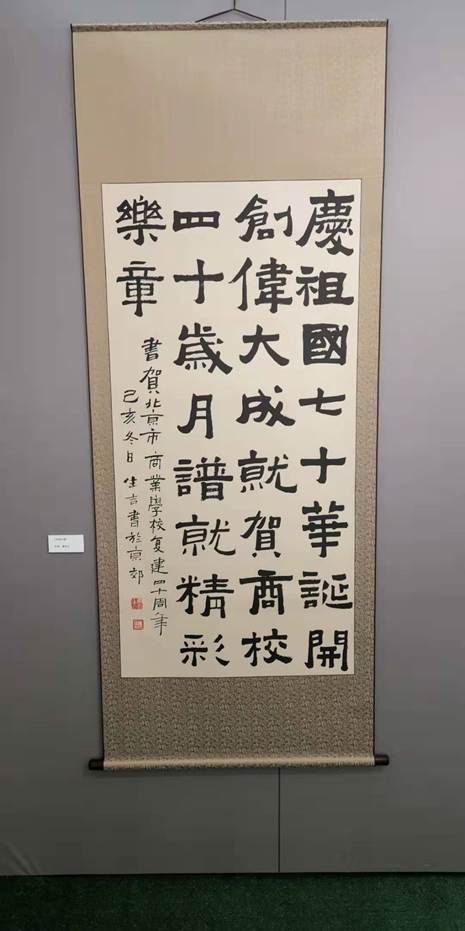 慶祖國七十華誕開
創偉大成就賀商校
四十歲月譜就精彩
樂章
書賀北京市商業學校复建四十周年
己亥冬日生言書於京郊